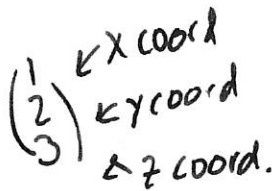 1 ↙ x coord
2 ↙ y coord
3 ↖ z coord.